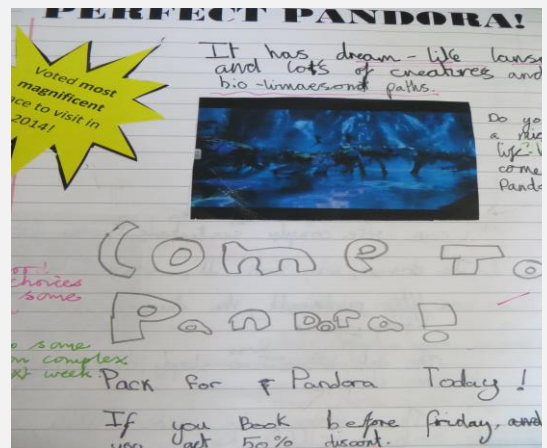 PERFECT PANDORA!
Voted most
magnificent
ce to visit in
2014!
It has dream-like lans
and lots of creatures and
bio-limaesond paths.
Do yo
a
life-
come
Panda
Come To
Pandora!
choices
some
some
on complex
xt week
Pack for Pandora Today!
If you Book before friday, and
you get 50% discont.